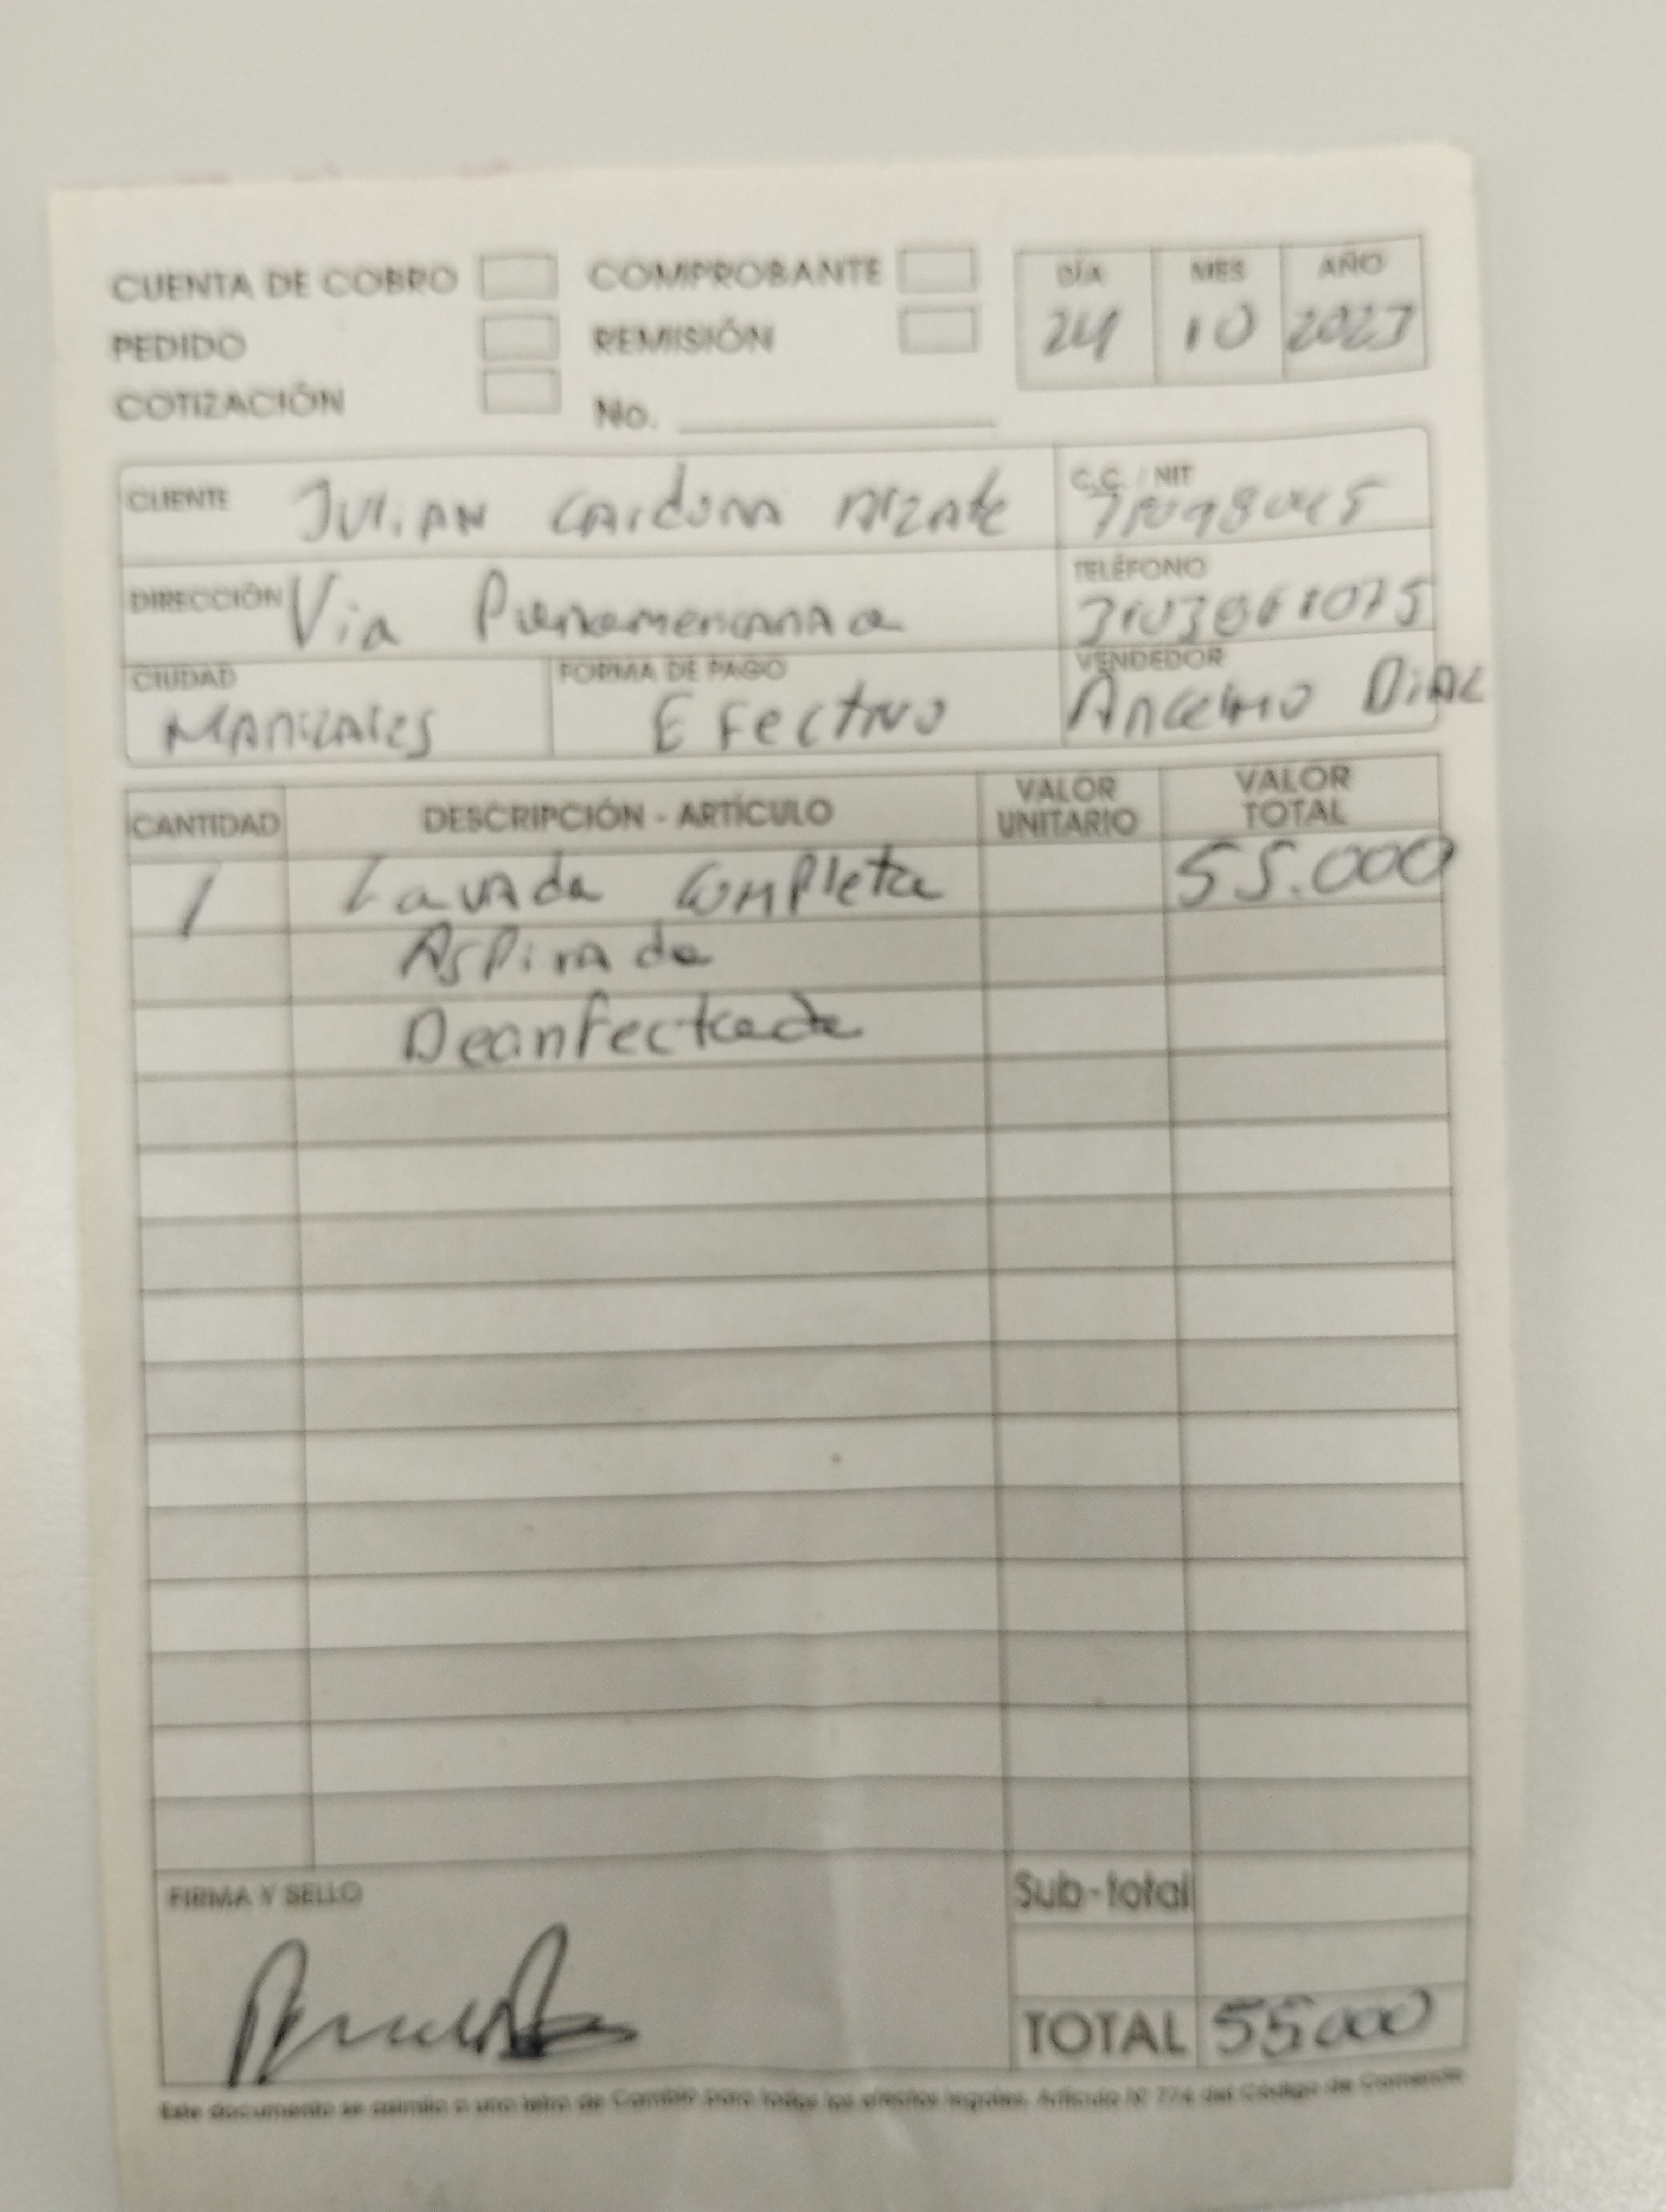 CUENTA DE COBRO COMPROBANTE DÍA MES AÑO
PEDIDO REMISIÓN 24 10 2023
COTIZACIÓN No.
CLIENTE JULIAN CARdONA AlZATE C.C. / NIT
DIRECCIÓN Via Panamericana TELÉFONO
CIUDAD FORMA DE PAGO VENDEDOR
MANIZALES EFectivo
CANTIDAD DESCRIPCIÓN - ARTÍCULO VALOR UNITARIO VALOR TOTAL
1 Lavada Completa 55.000
Aspirada
Deanfectada
FIRMA Y SELLO Sub-total
TOTAL 55000
Este documento se asimila a una letra de Cambio para todos los efectos legales. Artículo Nº 774 del Código de Comercio